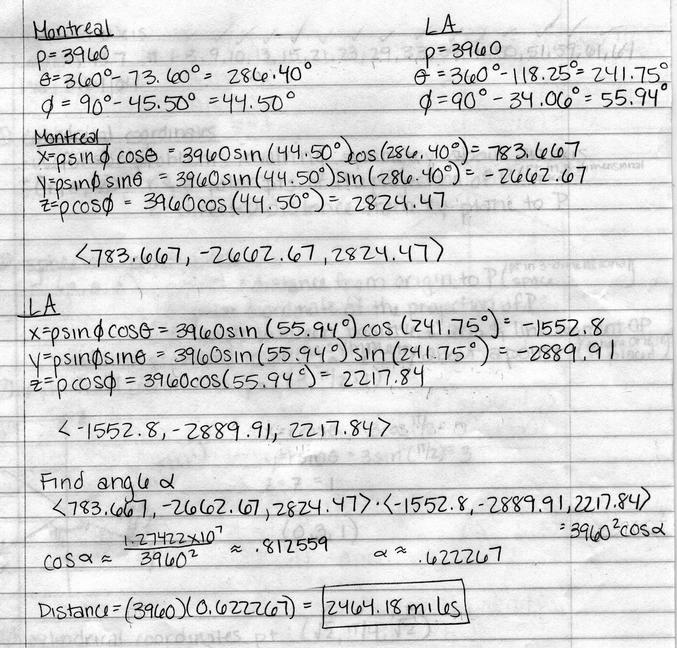 Montreal LA
ρ=3960 ρ=3960
θ=360°-73.60°= 286.40° θ=360°-118.25°=241.75°
ϕ=90°-45.50°=44.50° ϕ=90°-34.06°=55.94°
Montreal
x=ρsinϕcosθ = 3960sin(44.50°)cos(286.40°)= 783.667
y=ρsinϕsinθ = 3960sin(44.50°)sin(286.40°)= -2662.67
z=ρcosϕ = 3960cos(44.50°)= 2824.47
<783.667, -2662.67, 2824.47>
LA
x=ρsinϕcosθ = 3960sin(55.94°)cos(241.75°)= -1552.8
y=ρsinϕsinθ = 3960sin(55.94°)sin(241.75°) = -2889.91
z=ρcosϕ = 3960cos(55.94°)= 2217.84
<-1552.8, -2889.91, 2217.84>
Find angle α
<783.667, -2662.67, 2824.47>·<-1552.8, -2889.91, 2217.84>
=3960²cosα
cosα ≈ 1.27422x10⁷/3960² ≈ .812559 α ≈ .622267
Distance=(3960)(0.622267) = 2464.18 miles